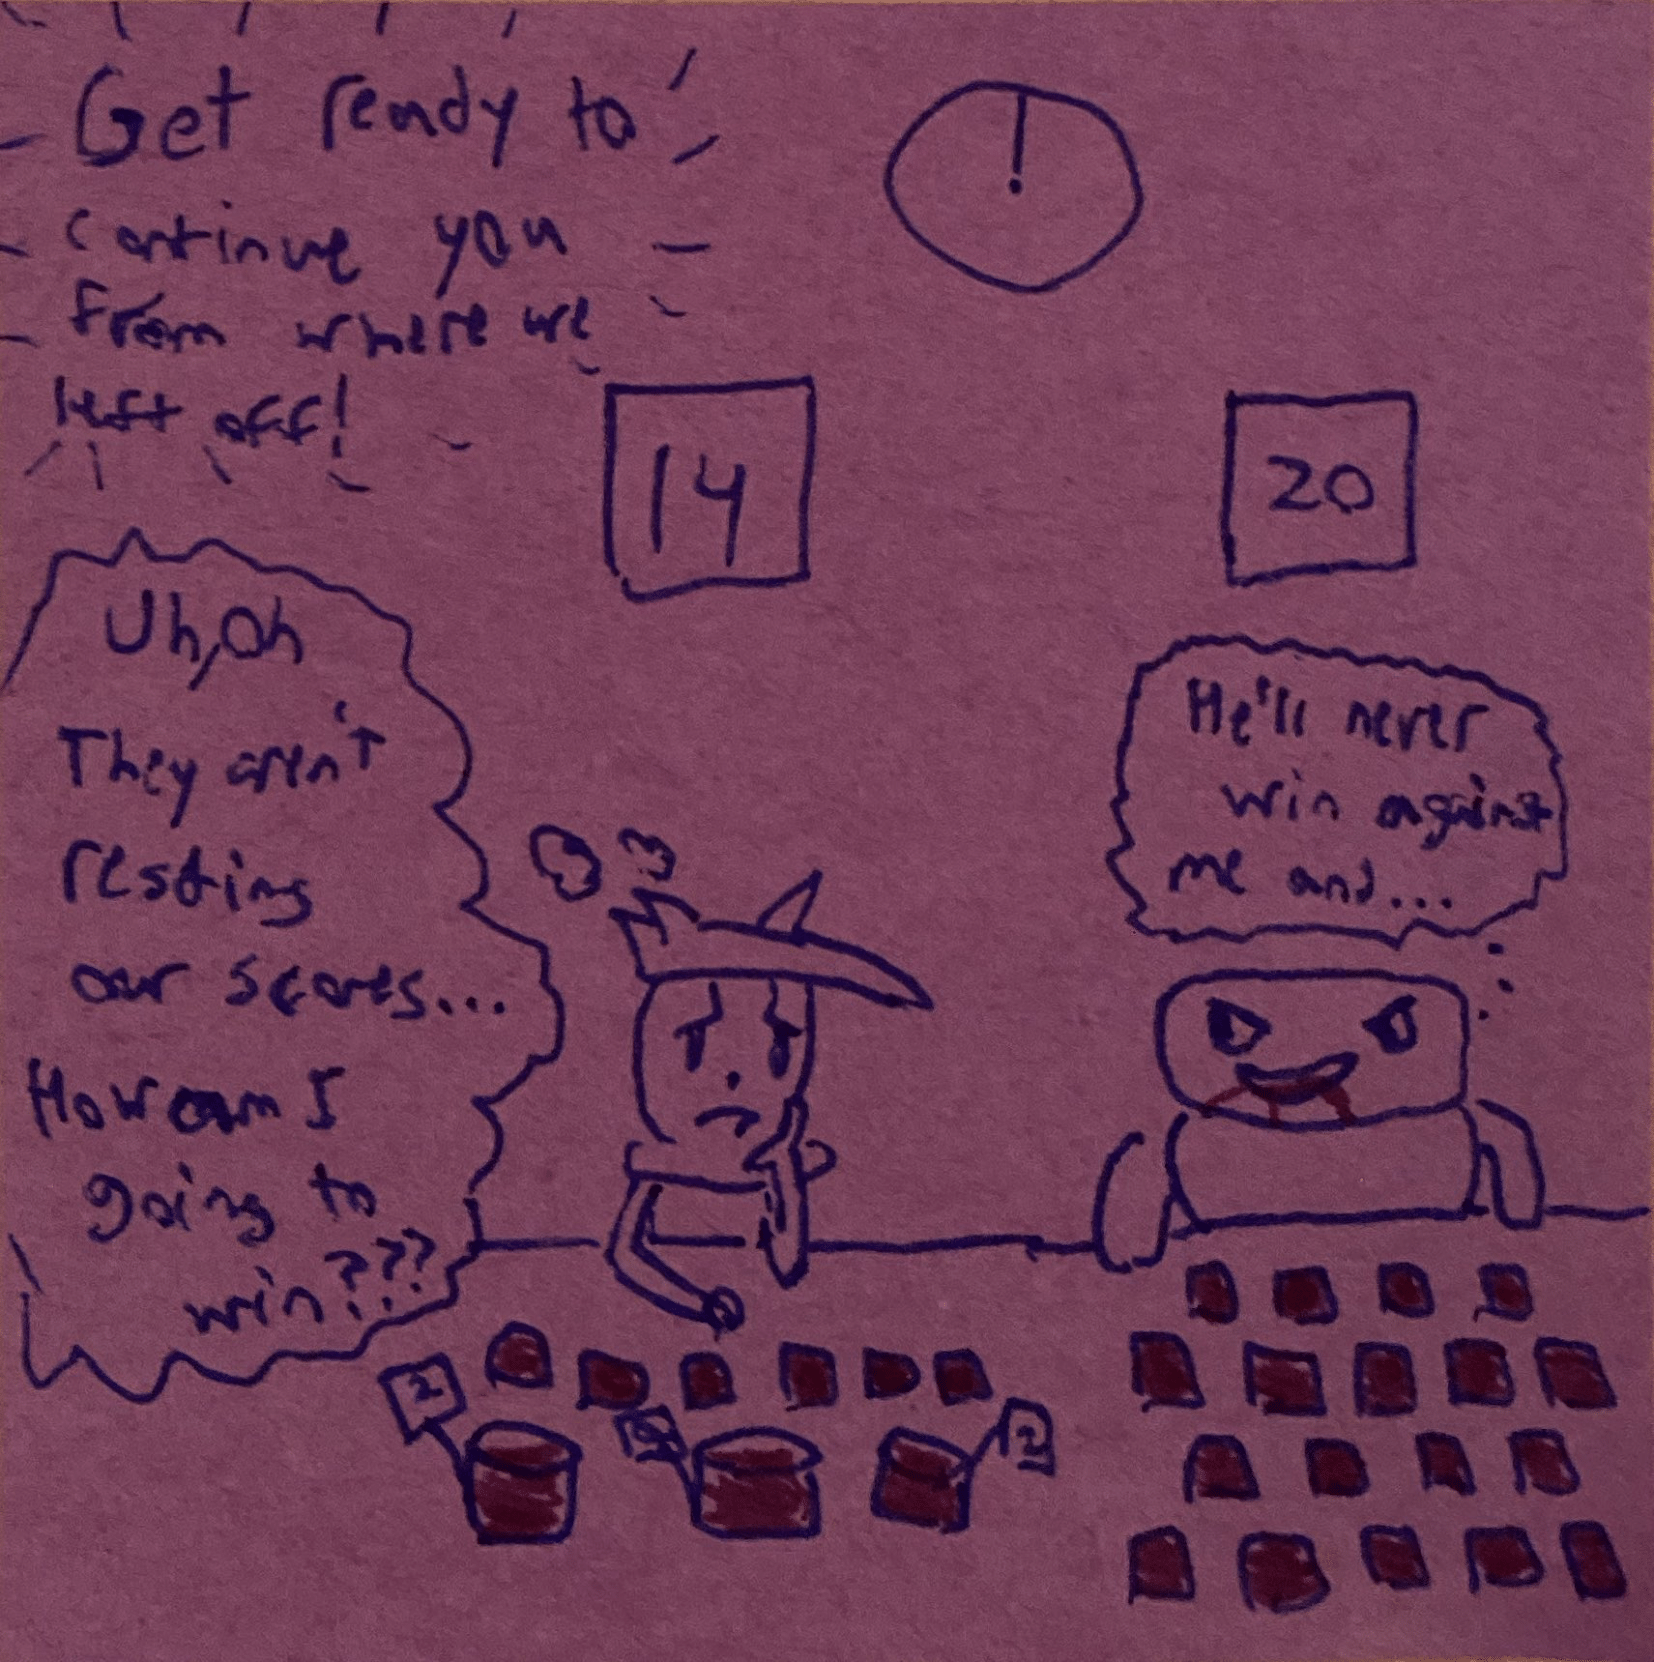 Get ready to
continue you
from where we
left off!
14
20
Uh,Oh
They aren't
resting
our scores...
How am I
going to
win???
He'll never
win against
me and...
2
2